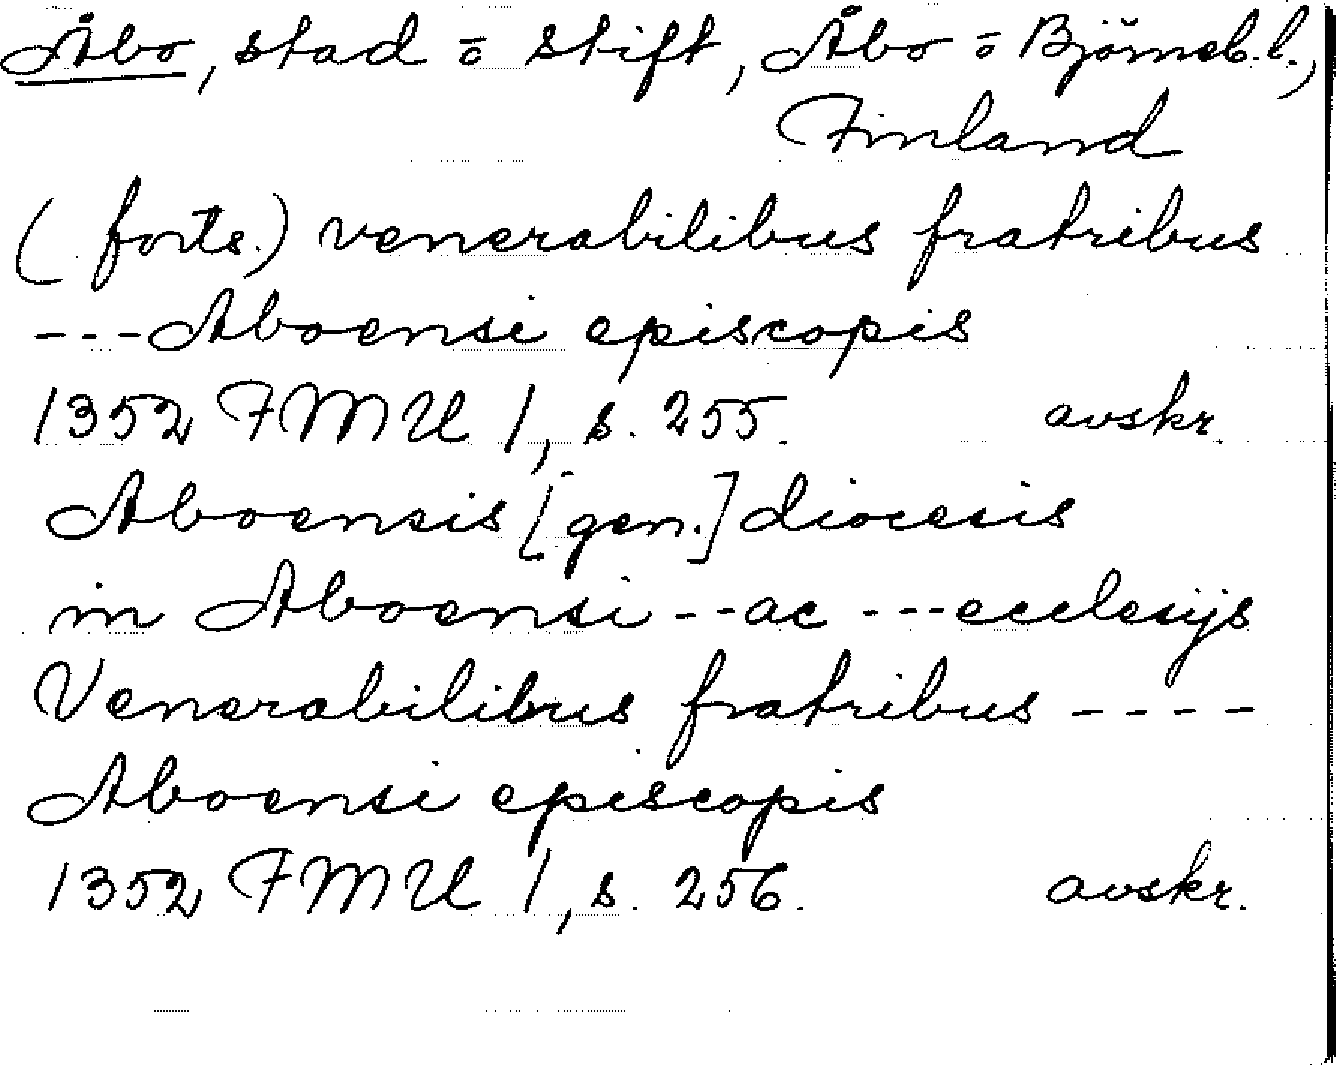 Åbo, stad o stift, Åbo o Björneb. l.,
Finland
(forts.) venerabilibus fratribus
---Aboensi episcopis
1352 FMU 1, s. 255. avskr.
Aboensis [gen.] diocesis
in Aboensi --ac ---ecclesijs
Venerabilibus fratribus ----
Aboensi episcopis
1352 FMU 1, s. 256. avskr.